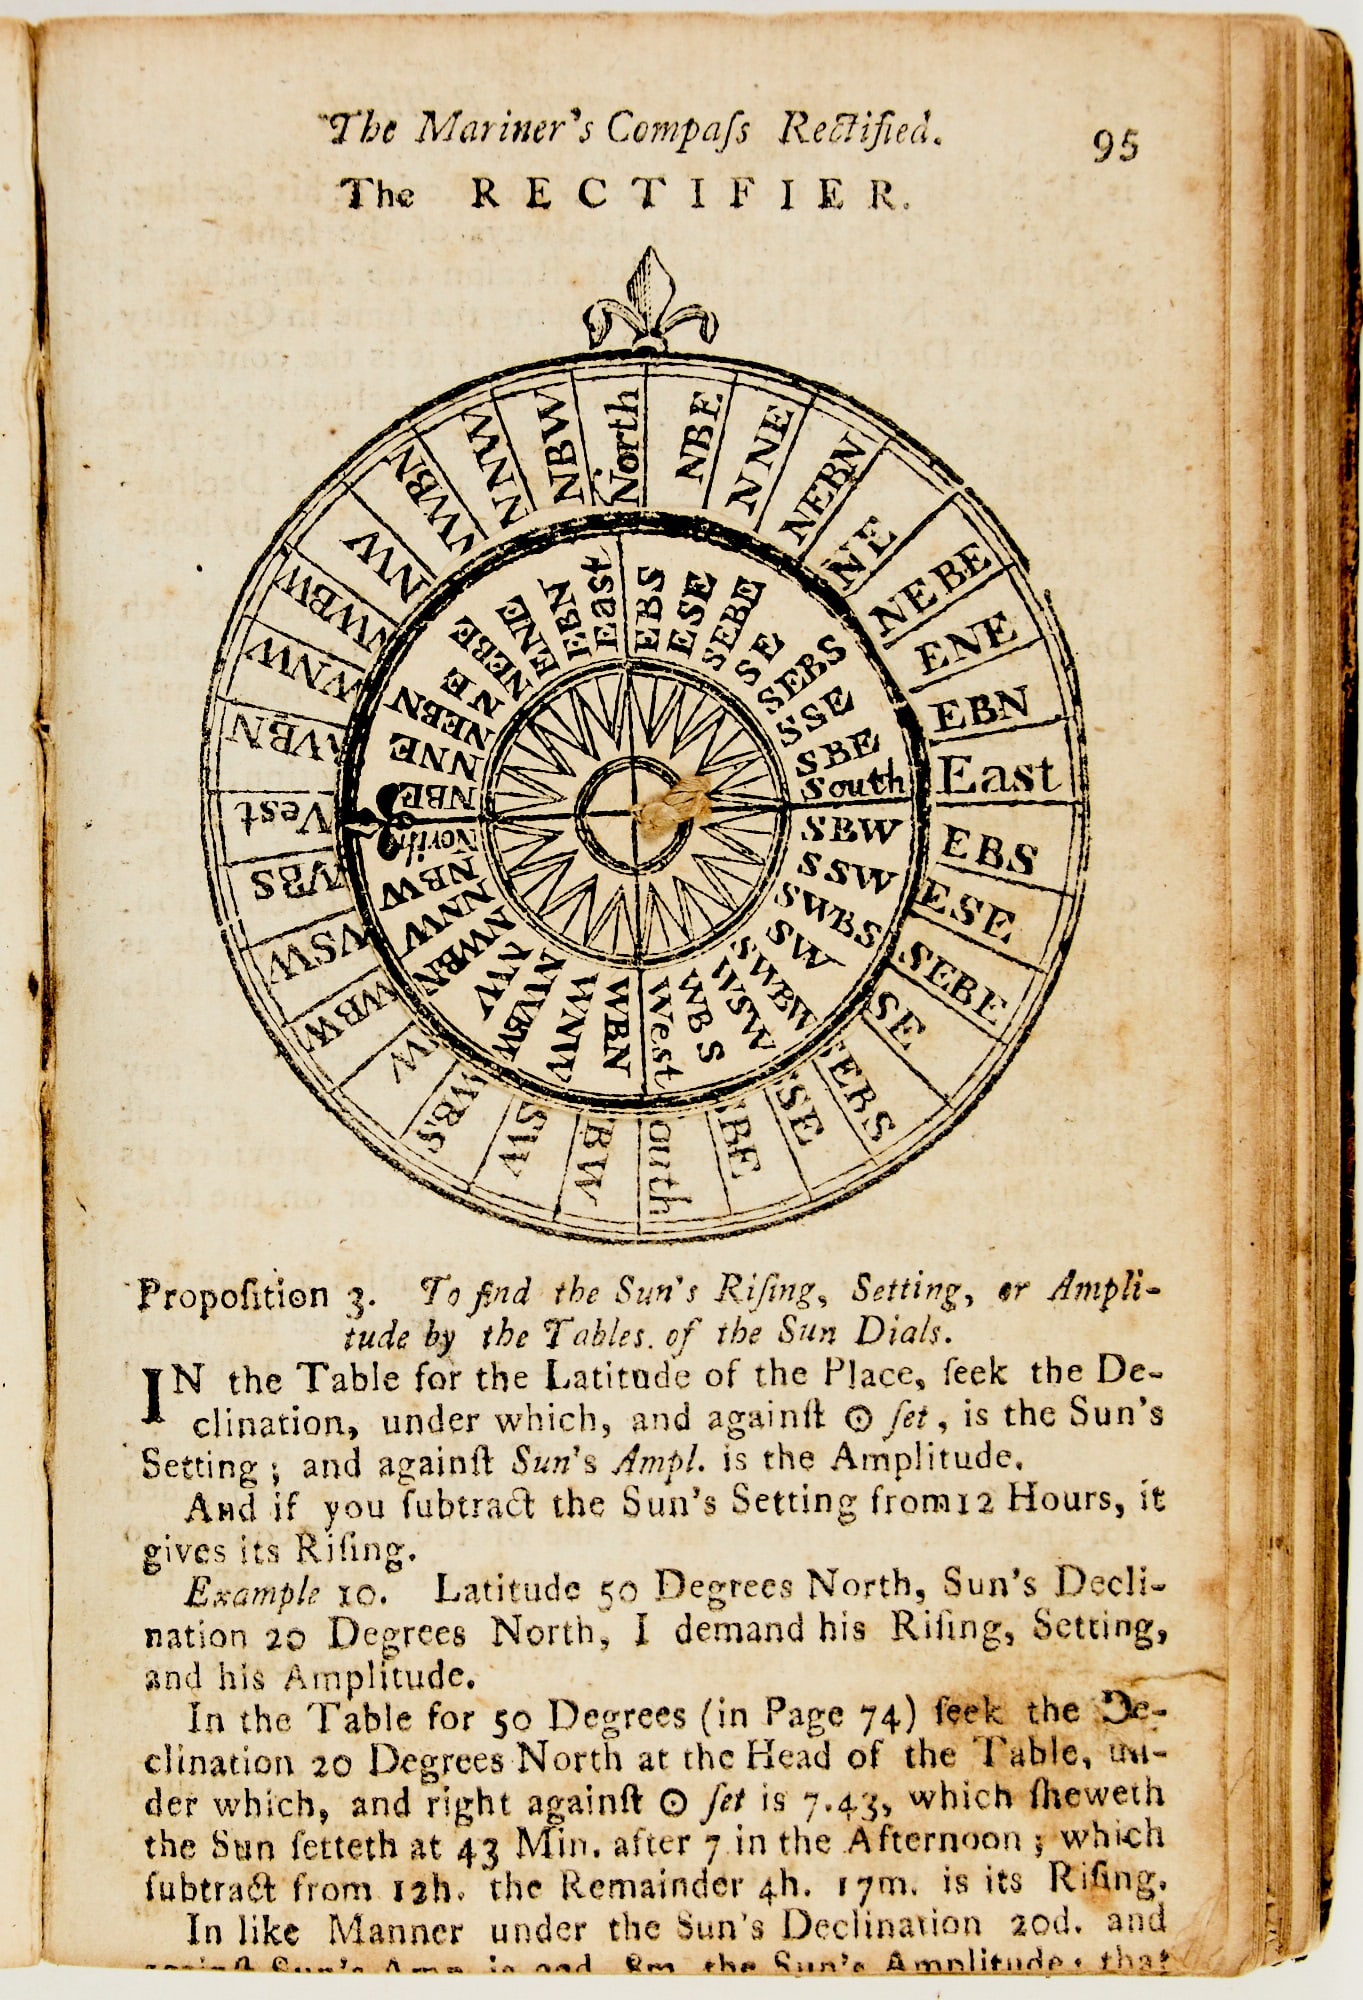 The Mariner's Compaſs Rectified.
95
The RECTIFIER.
North
NBE
NNE
NEBN
NE
NEBE
ENE
EBN
East
EBS
ESE
SEBE
SE
EBS
SE
BE
outh
BW
SW
WBS
W
WBW
WSW
WBS
Vest
WBN
WNW
NWBW
NW
NWBN
NNW
NBW
East
EBS
ESE
SEBE
SE
SEBS
SSE
SBE
South
SBW
SSW
SWBS
SW
SWBW
WSW
WBS
West
WBN
WNW
NWBW
NW
NWBN
NNW
NBW
North
NBE
NNE
NEBN
NE
NEBE
ENE
EBN
Propoſition 3. To find the Sun's Riſing, Setting, or Ampli-
tude by the Tables of the Sun Dials.
IN the Table for the Latitude of the Place, ſeek the De-
clination, under which, and againſt ☉ ſet, is the Sun's
Setting; and againſt Sun's Ampl. is the Amplitude.
And if you ſubtract the Sun's Setting from 12 Hours, it
gives its Riſing.
Example 10. Latitude 50 Degrees North, Sun's Decli-
nation 20 Degrees North, I demand his Riſing, Setting,
and his Amplitude.
In the Table for 50 Degrees (in Page 74) ſeek the De-
clination 20 Degrees North at the Head of the Table, un-
der which, and right againſt ☉ ſet is 7.43, which ſheweth
the Sun ſetteth at 43 Min. after 7 in the Afternoon; which
ſubtract from 12h. the Remainder 4h. 17m. is its Riſing.
In like Manner under the Sun's Declination 20d. and
againſt Sun's Amp. is 8m. the Sun's Amplitude; that